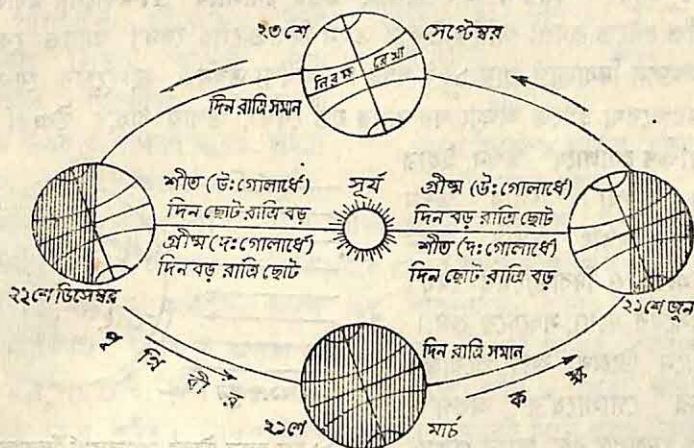 ২৩শে সেপ্টেম্বর
নিরক্ষ রেখা
দিন রাত্রি সমান
শীত (উঃ গোলার্ধে)
দিন ছোট রাত্রি বড়
গ্রীষ্ম (দঃ গোলার্ধে)
দিন বড় রাত্রি ছোট
সূর্য
গ্রীষ্ম (উঃ গোলার্ধে)
দিন বড় রাত্রি ছোট
শীত (দঃ গোলার্ধে)
দিন ছোট রাত্রি বড়
২২শে ডিসেম্বর
২১শে জুন
পৃথিবীর কক্ষ
দিন রাত্রি সমান
২১শে মার্চ